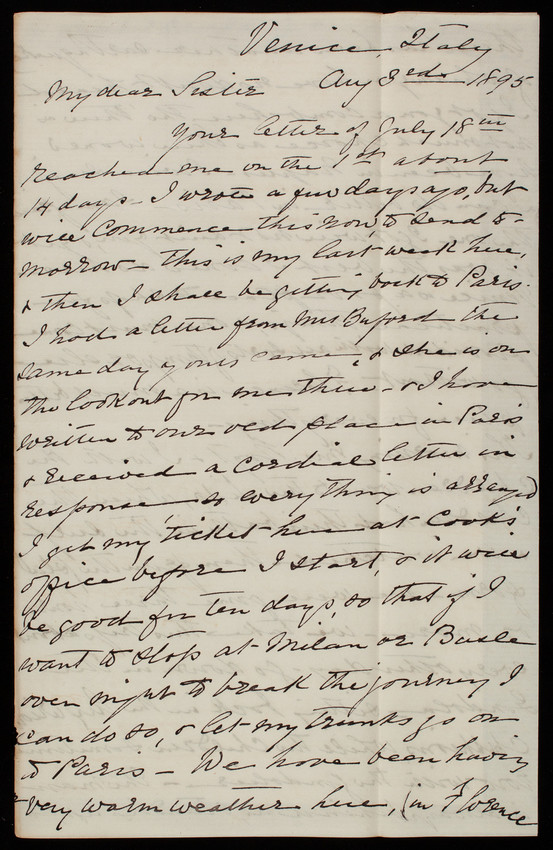 Venice, Italy
My dear Sister Aug 3ed 1895
Your letter of July 18th
reached me on the 1st about
14 days - I wrote a few days ago, but
will commence this now, to send to-
morrow - this is my last week here,
& then I shall be getting back to Paris.
I had a letter from Mrs Buford the
same day yours came, & she is on
the lookout for me there - & I have
written to our old place in Paris
& received a cordial letter in
response, so everything is arranged
I get my ticket here at Cook's
office before I start, & it will
be good for ten days, so that if I
want to stop at Milan or Basle
over night to break the journey I
can do so, & let my trunks go on
to Paris - We have been having
very warm weather here, (in Florence